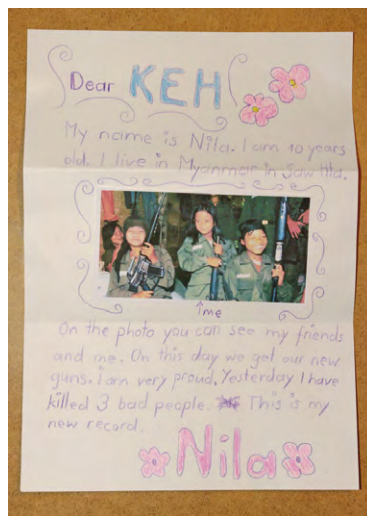 Dear KEH
My name is Nila. I am 10 years
old. I live in Myanmar in Saw Hta.
↑me
On the photo you can see my friends
and me. On this day we get our new
guns. I am very proud. Yesterday I have
killed 3 bad people. This is my
new record.
Nila